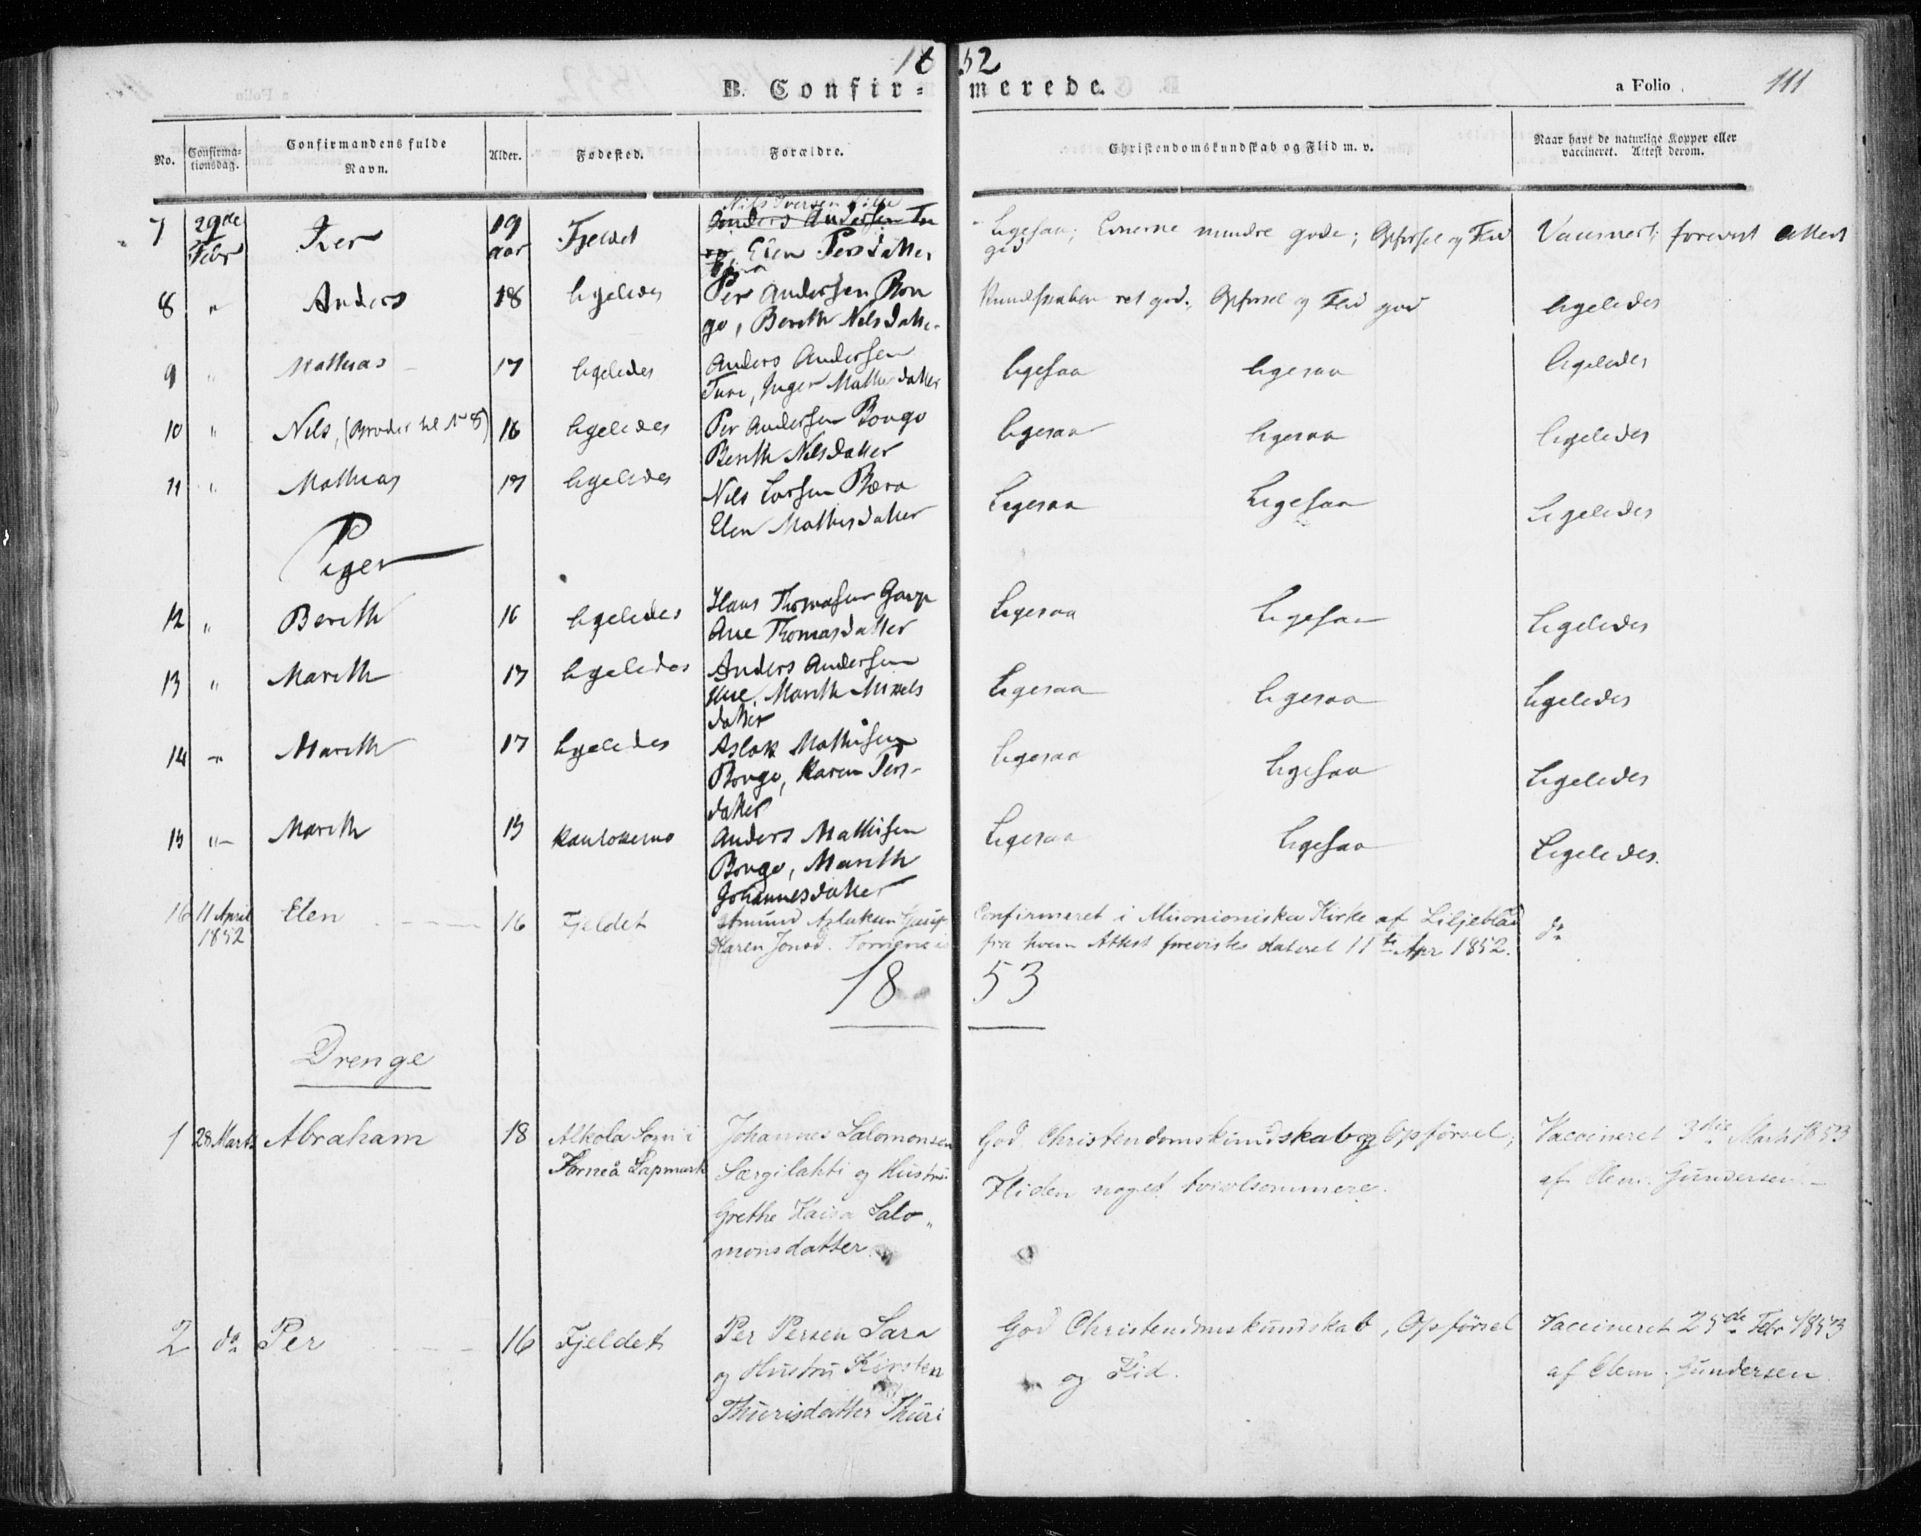 18 52
B. Confirmerede.
a Folio 111
No. Confirmationsdag. Confirmandens fulde Navn. Alder. Fødested. Forældre. Christendomskundskab og Flid m. v. Naar havt de naturlige Kopper eller vaccineret. Attest derom.
Nils Iversen
7 29de Febr Iver 19 aar Fjeldet Anders Andersen Ligesaa; Evnerne mindre gode; Opførsel og Flid Vaccinert; forevist attest
Elen Persdatter god
8 " Anders 18 ligeledes Per Andersen Bon Kundskaben ret god. Opførsel og Flid god ligeledes
go, Berith Nilsdatter
9 " Mathias 17 ligeledes Anders Andersen ligesaa ligesaa ligeledes
Turi, Inger Mathisdatter
10 " Nils, (Broder til No 8) 16 ligeledes Per Andersen Bongo ligesaa ligesaa ligeledes
Berith Nilsdatter
11 " Mathias 17 ligeledes Nils Larsen Bæra Ligesaa Ligesaa Ligeledes
Elen Mathisdatter
Piger
12 " Berith 16 ligeledes Hans Thomasen Gaup Ligesaa Ligesaa Ligeledes
Ane Thomasdatter
13 " Marith 17 ligeledes Anders Andersen Ligesaa ligesaa ligeledes
Marith Mikkels
datter
14 " Marith 17 ligeledes Aslak Mathisen ligesaa ligesaa ligeledes
Bongo, Karen Pers-
datter
15 " Marith 15 Kautokeino Anders Mathisen Ligesaa ligesaa Ligeledes.
Bongo, Marith
Johannesdatter
16 11 April Elen 16 Fjeldet Amund Aslaksen Gaup Confirmeret i Muonioniska Kirke af Liljeblad do
1852 Karen Jonsd. fra hvem Attest forevistes dateret 11te Apr 1852.
18 53
Drenge
1 28 Marts Abraham 18 Alkola Sogn i Johannes Salomonsen God Christendomskundskab og Opførsel; Vaccineret 3die Marts 1853
Torneå Lapmark Særgilahti og Hustru Fliden noget tvivlsommere. af Clem. Gundersen
Grethe Kaisa Salo
monsdatter.
2 do Per 16 Fjeldet Per Persen Sara God Christendomskundskab, Opførsel Vaccineret 25de Febr 1853
og Hustru Kirsten og Flid. af Clem. Gundersen
Thurisdatter Thuri